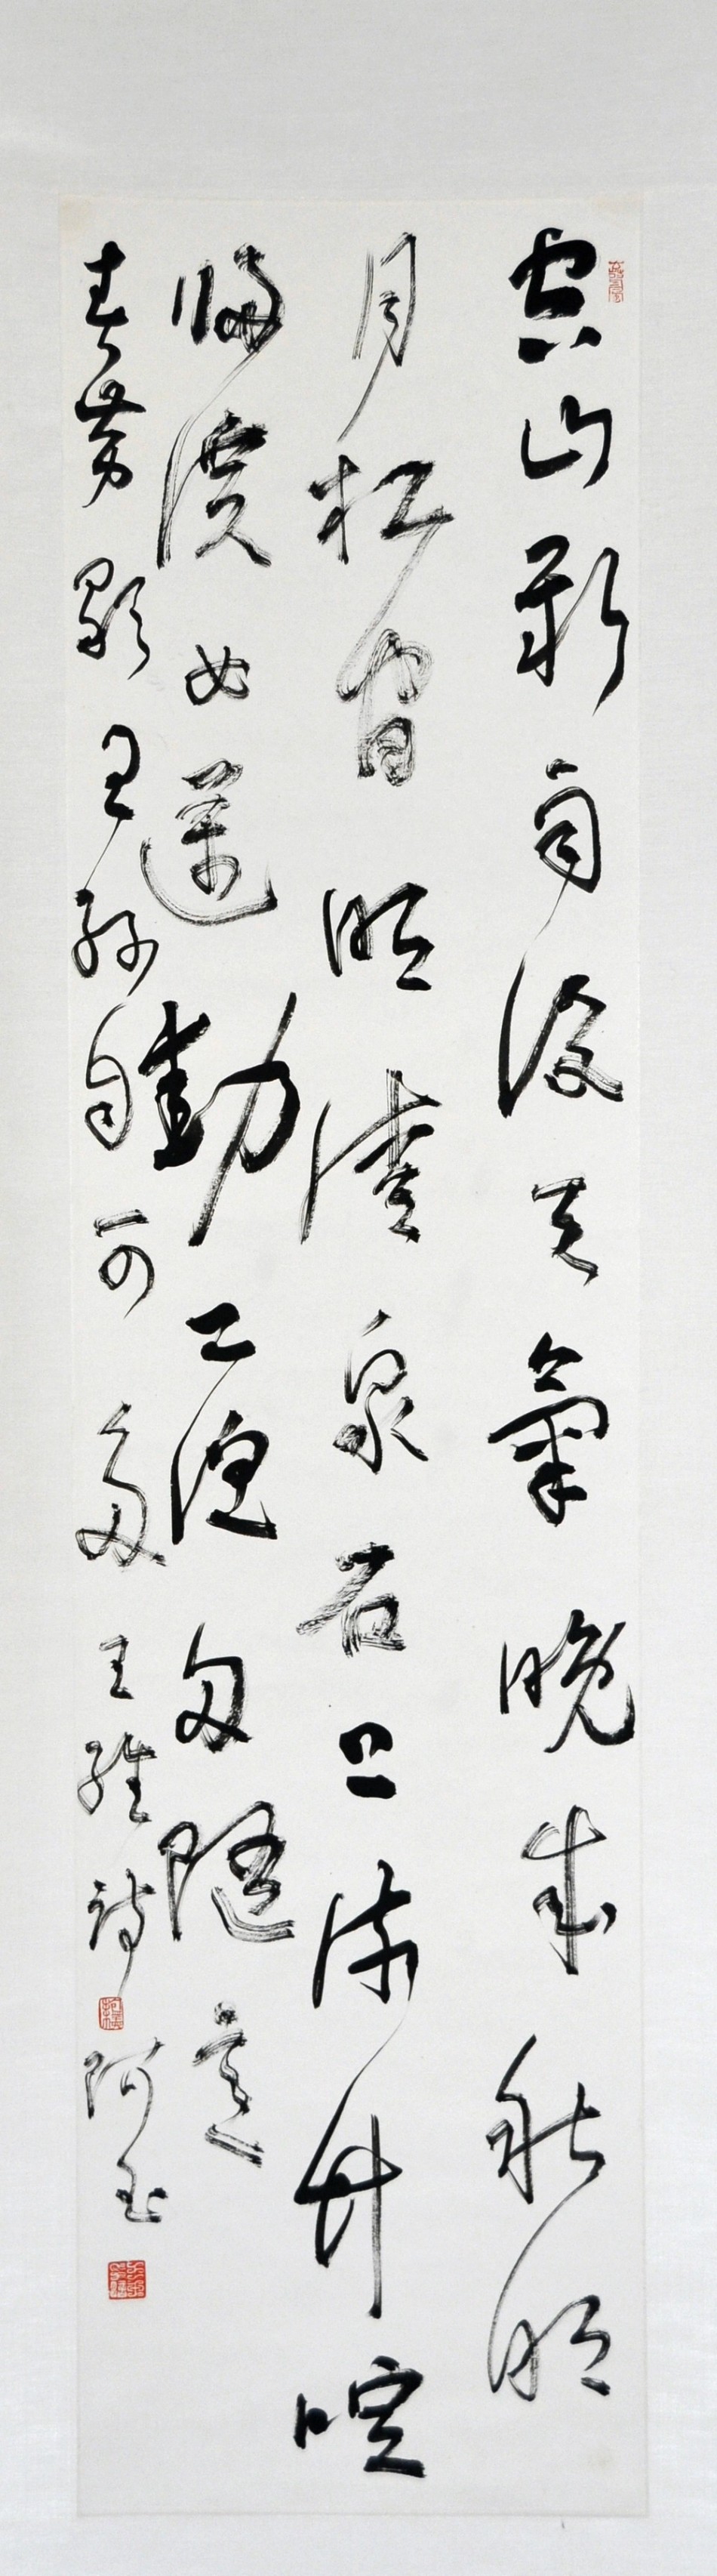 空山新雨後天氣晚來秋明
月松間照清泉石上流竹喧
歸浣女蓮動下漁舟隨意
春芳歇王孫自可留王維詩阿玉